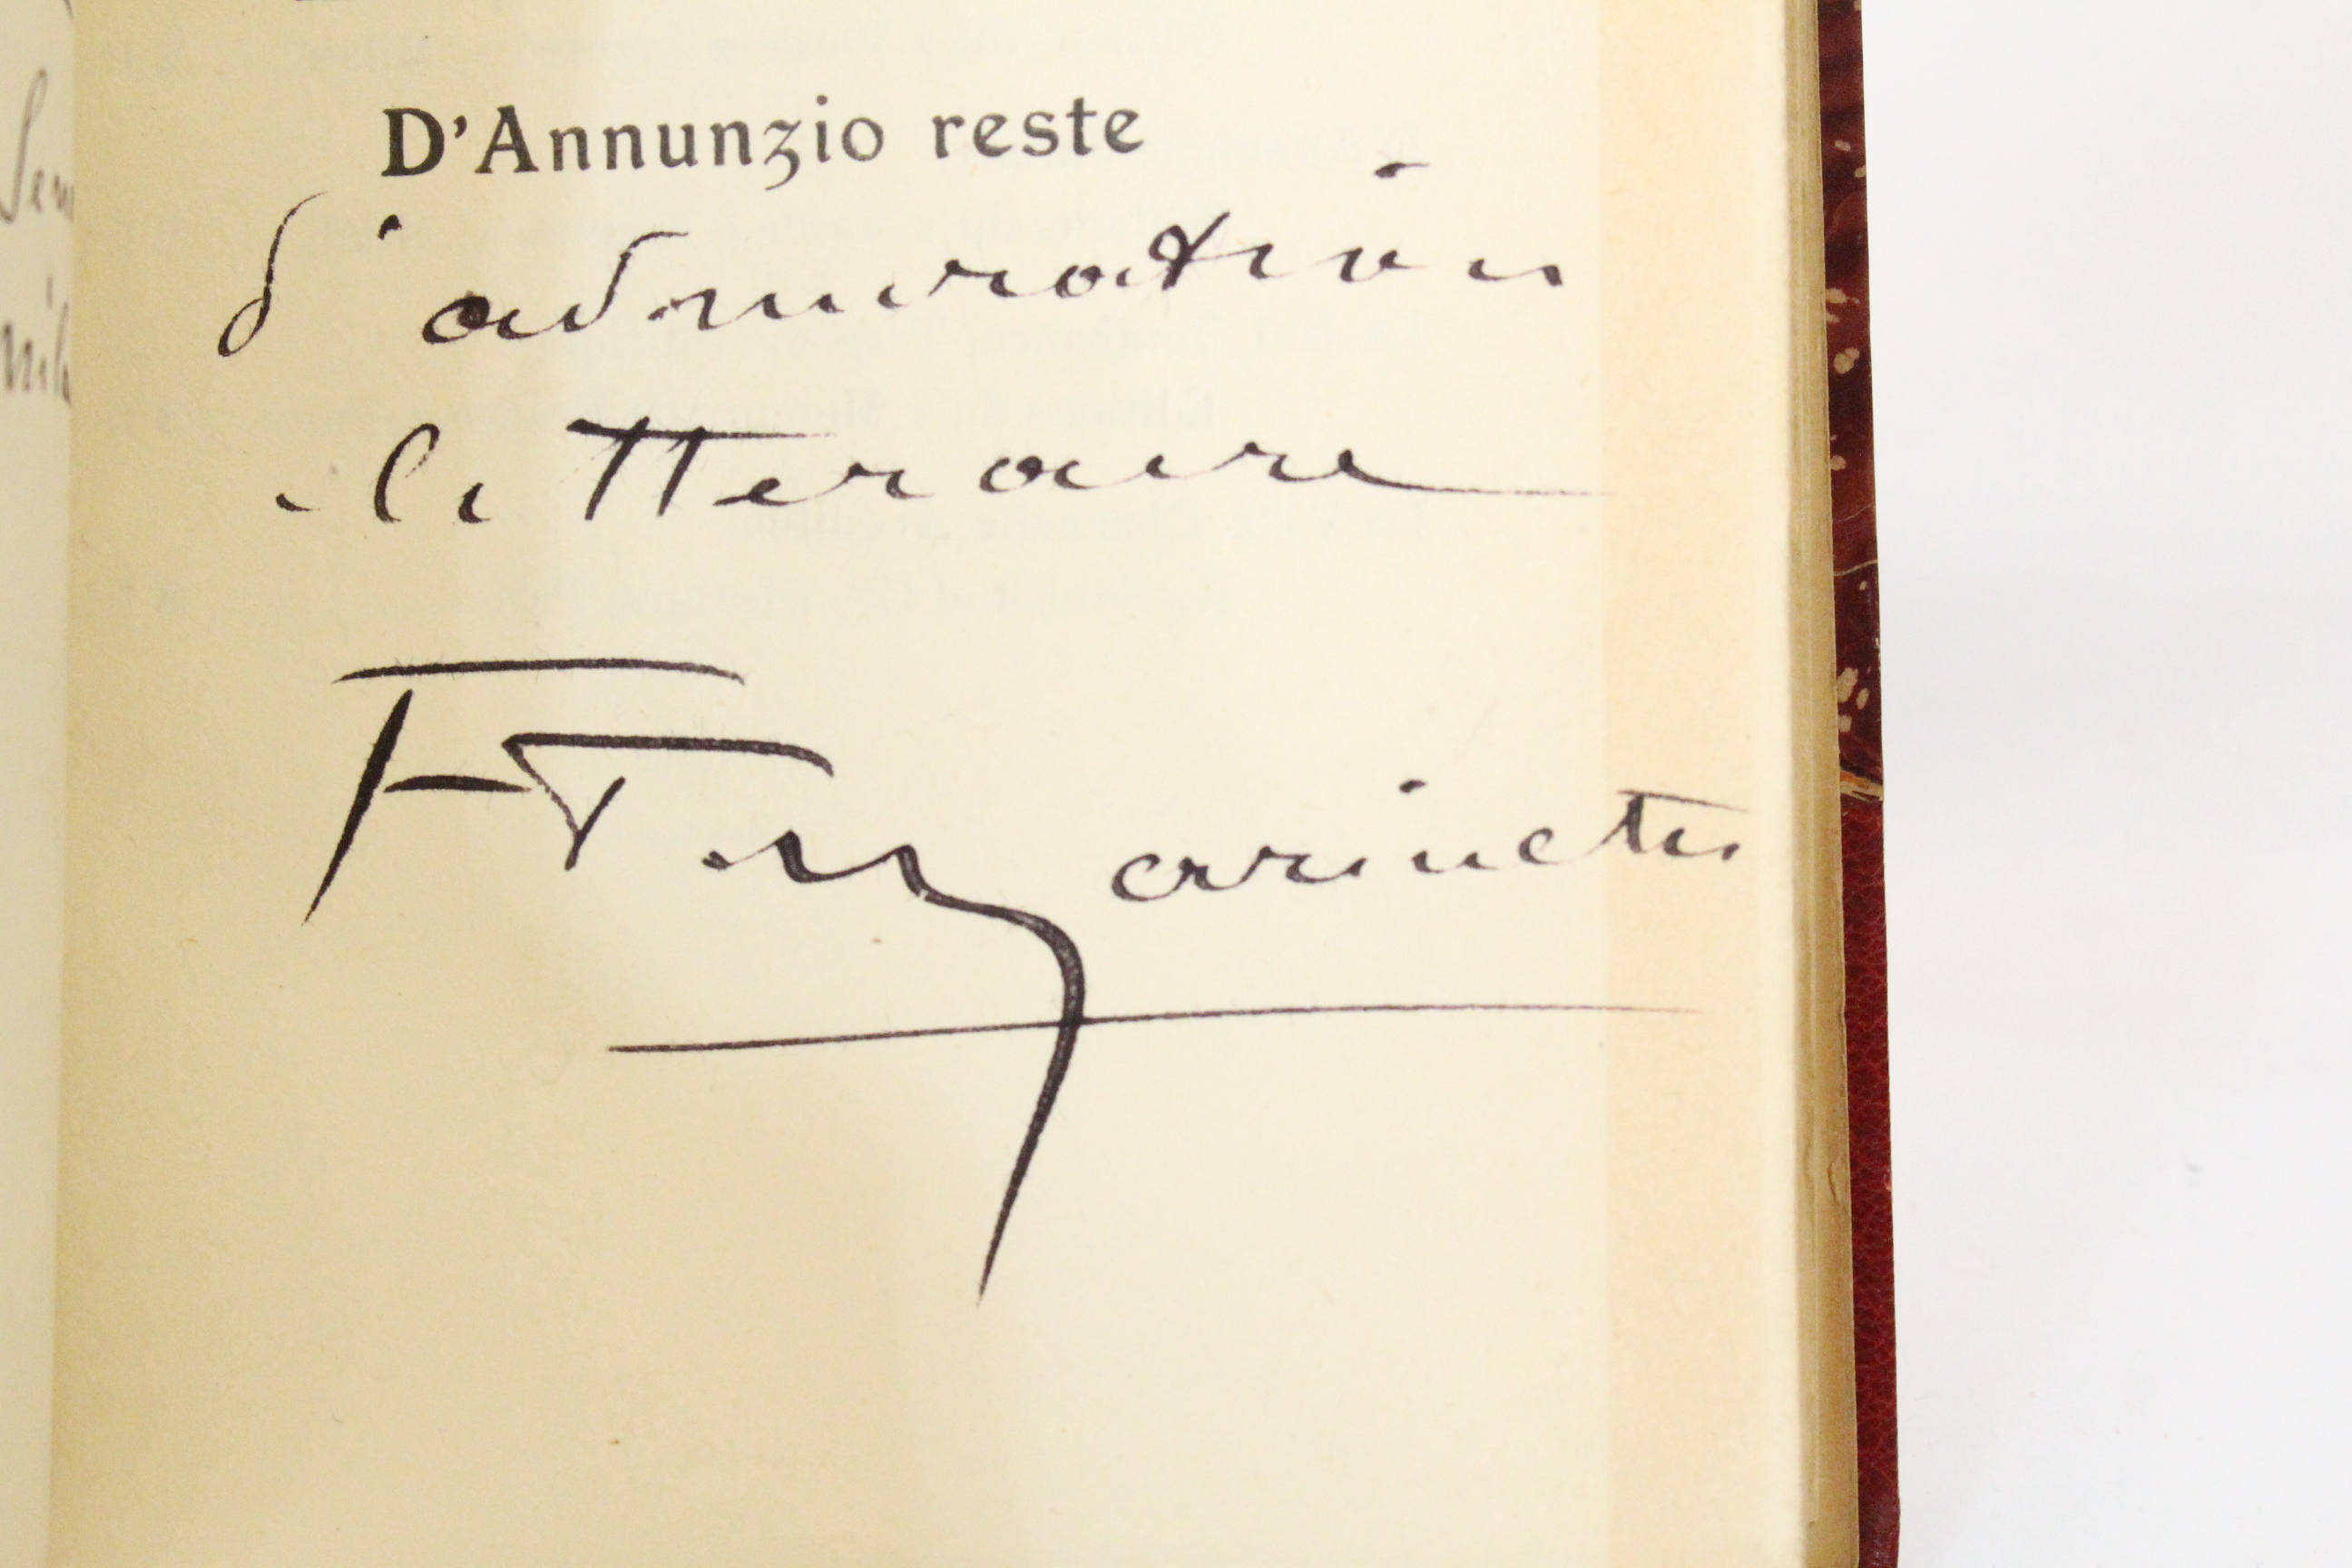 D'Annunzio reste
d'admiration
litteraire
FTMarinetti